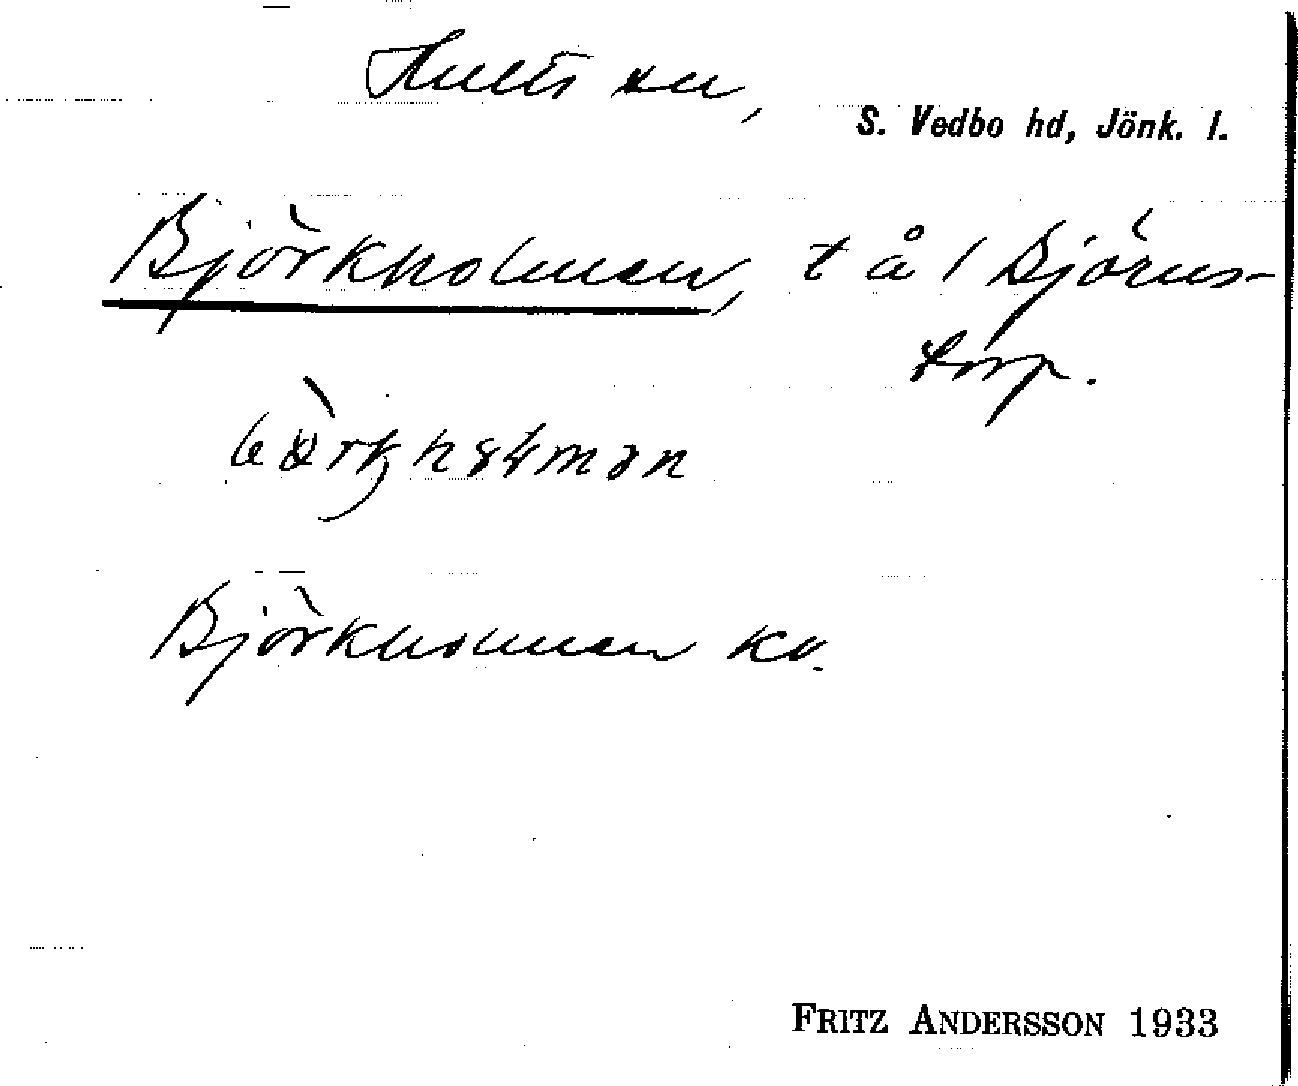 Hults sn,
S. Vedbo hd, Jönk. l.
Björkholmen, t å 1 Björns-
torp.
Björkholmen kv.
FRITZ ANDERSSON 1933